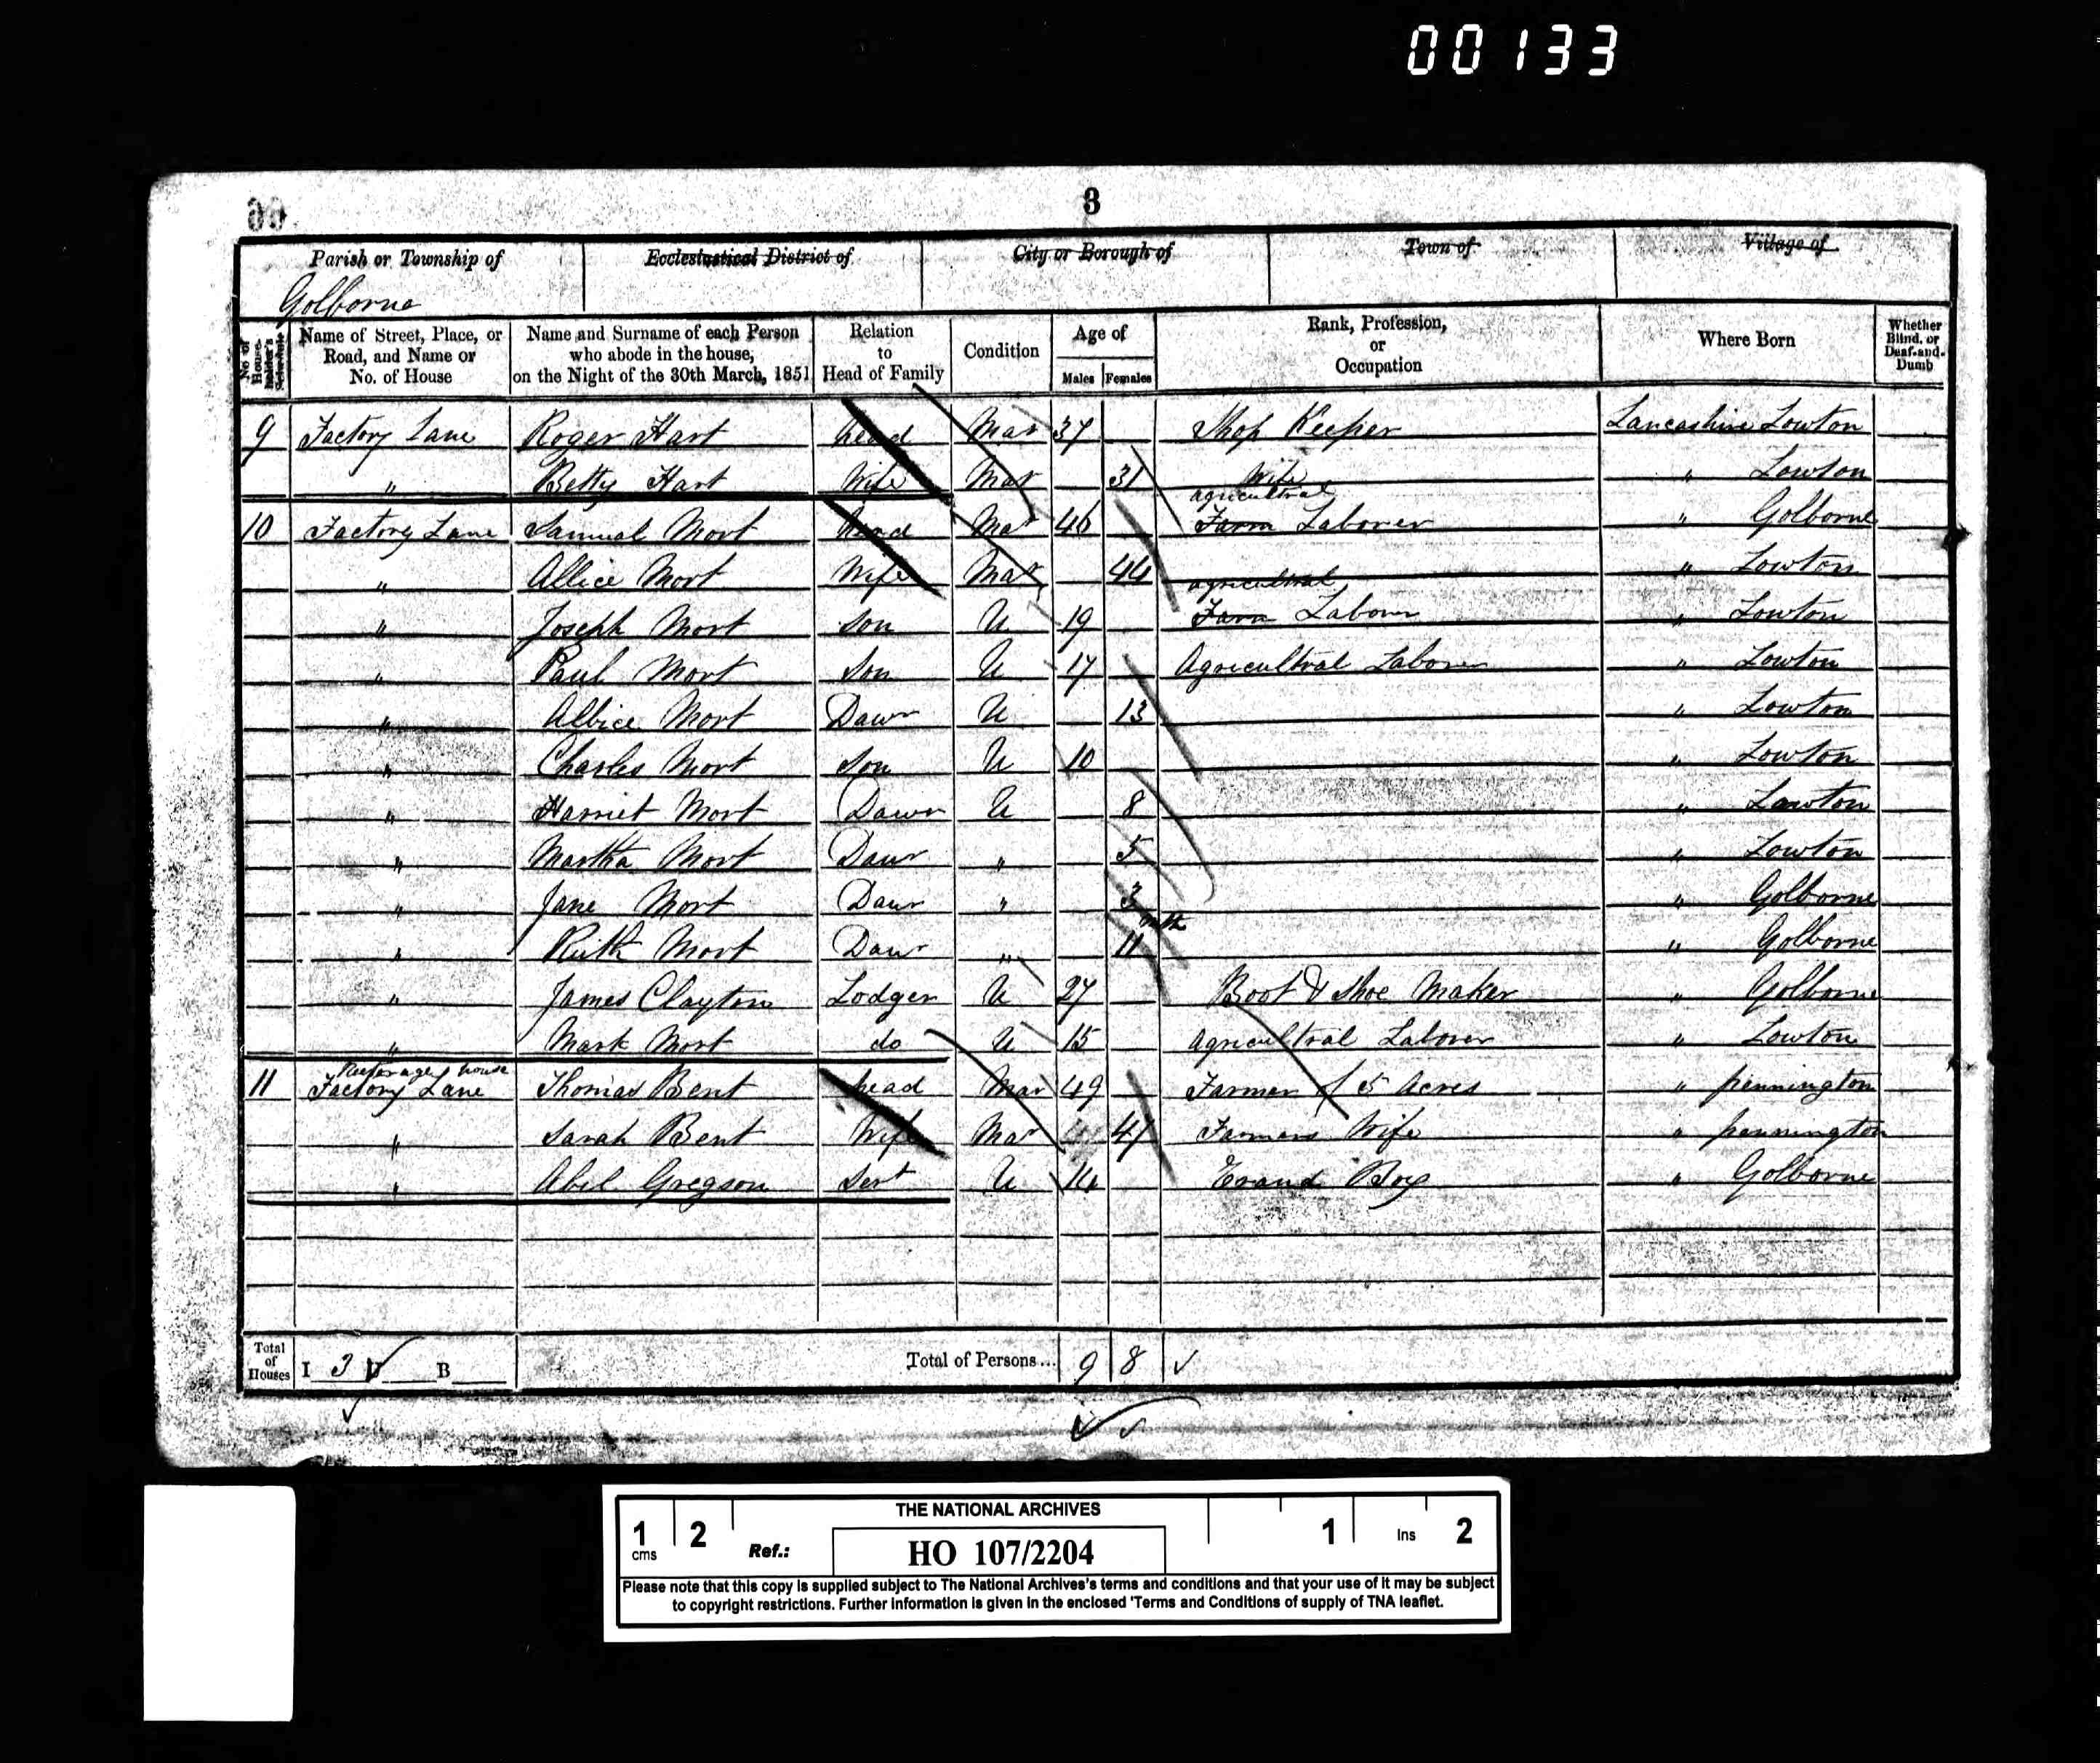 00133
3
Parish or Township of Ecclesiastical District of City or Borough of Town of Village of
Golborne
No. of House-holder's Schedule Name of Street, Place, or Road, and Name or No. of House Name and Surname of each Person who abode in the house, on the Night of the 30th March, 1851 Relation to Head of Family Condition Age of Males Females Rank, Profession, or Occupation Where Born Whether Blind, or Deaf-and-Dumb
9 Factory Lane Roger Hart head Mar 37 Shop Keeper Lancashire Lowton
" Betty Hart Wife Mar 31 Wife " Lowton
10 Factory Lane Samuel Mort head Mar 46 agricultral Farm Laborer " Golborne
" Allice Mort Wife Mar 44 " Lowton
" Joseph Mort Son U 19 agricultral Farm Labour " Lowton
" Paul Mort Son U 17 Agricultral Laborer " Lowton
" Allice Mort Dawr U 13 " Lowton
" Charles Mort Son U 10 " Lowton
" Harriet Mort Dawr U 8 " Lowton
" Martha Mort Daur " 5 " Lowton
" Jane Mort Daur " 3 " Golborne
" Ruth Mort Daur " 11 mth " Golborne
" James Clayton Lodger U 27 Boot & Shoe Maker " Golborne
" Mark Mort do U 15 Agricultral Laborer " Lowton
11 house Factory Lane Thomas Bent head Mar 49 Farmer of 5 Acres " pennington
" Sarah Bent Wife Mar 47 Farmers Wife " pennington
" Abel Gregson Sert U 14 Erand Boy " Golborne
Total of Houses I 3 U B Total of Persons... 9 8
THE NATIONAL ARCHIVES
1 cms 2 Ref.: HO 107/2204 1 Ins 2
Please note that this copy is supplied subject to The National Archives's terms and conditions and that your use of it may be subject
to copyright restrictions. Further information is given in the enclosed 'Terms and Conditions of supply of TNA leaflet.